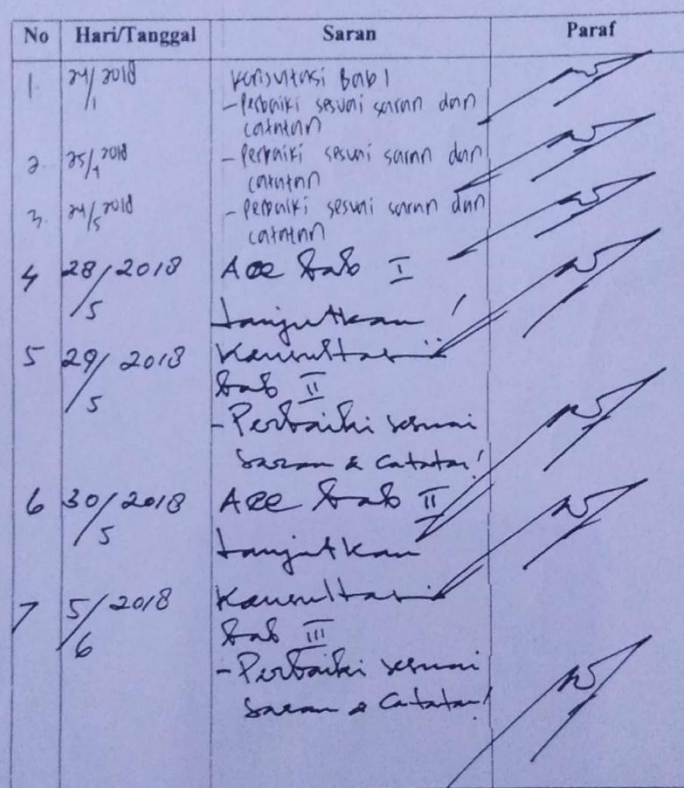 No Hari/Tanggal Saran Paraf
1. 24/1 2018 Konsultasi Bab 1
- Perbaiki sesuai saran dan
catatan
2. 25/4 2018 - Perbaiki sesuai saran dan
catatan
3. 24/5 2018 - Perbaiki sesuai saran dan
catatan
4 28/5 2018 Acc Bab I
Lanjutkan!
5 29/5 2018 Konsultasi
Bab II
- Perbaiki sesuai
saran & catatan!
6 30/5 2018 Acc Bab II
Lanjutkan
7 5/6 2018 Konsultasi
Bab III
- Perbaiki sesuai
saran & catatan!